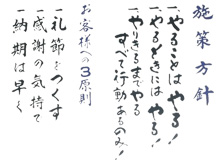 施策方針
一、やることは やる!
一、やるときには やる!
一、やりきるまで やる
すべて行動あるのみ!
お客様への3原則
一礼節をつくす
一感謝の気持て
一納期は早く